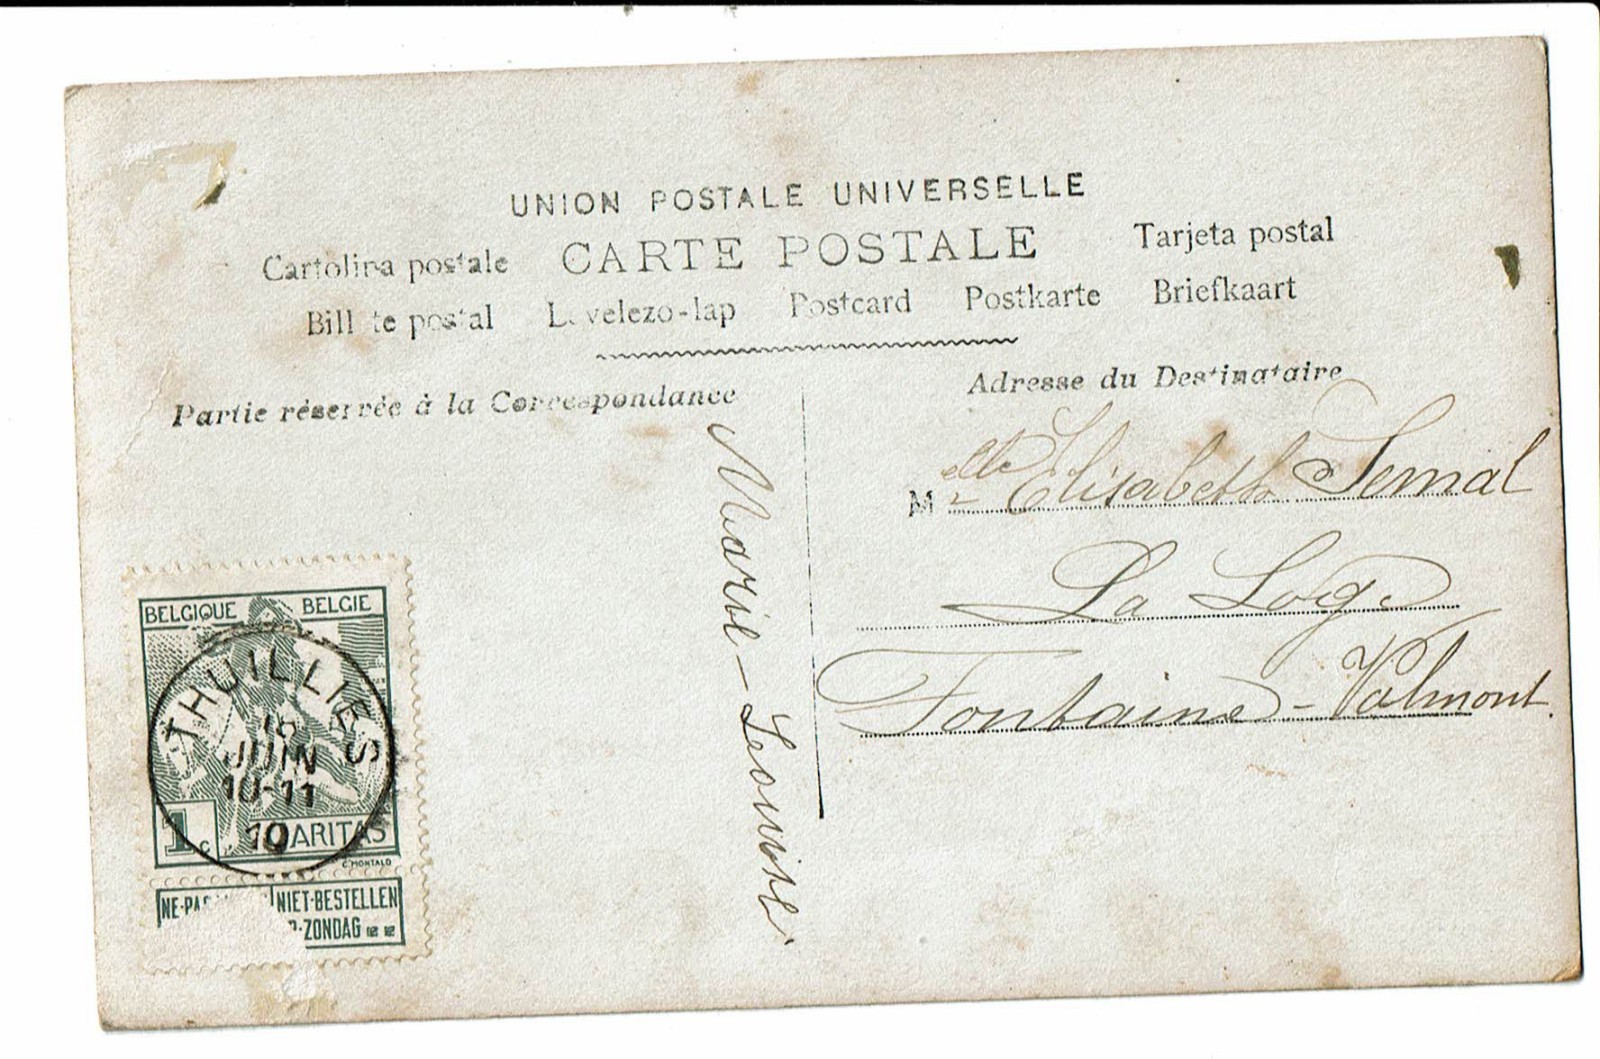 UNION POSTALE UNIVERSELLE
Cartolina postale CARTE POSTALE Tarjeta postal
Billete postal Levelezo-lap Postcard Postkarte Briefkaart
Partie réservée à la Correspondance
Adresse du Destinataire
Melle Elisabeth Semal
La Loge
Fontaine-Valmont.
Marie-Leonire
BELGIQUE BELGIE
THUILLIES
JUIN
10-11
10
1c CARITAS
C.MONTALD
NIET-BESTELLEN
ZONDAG